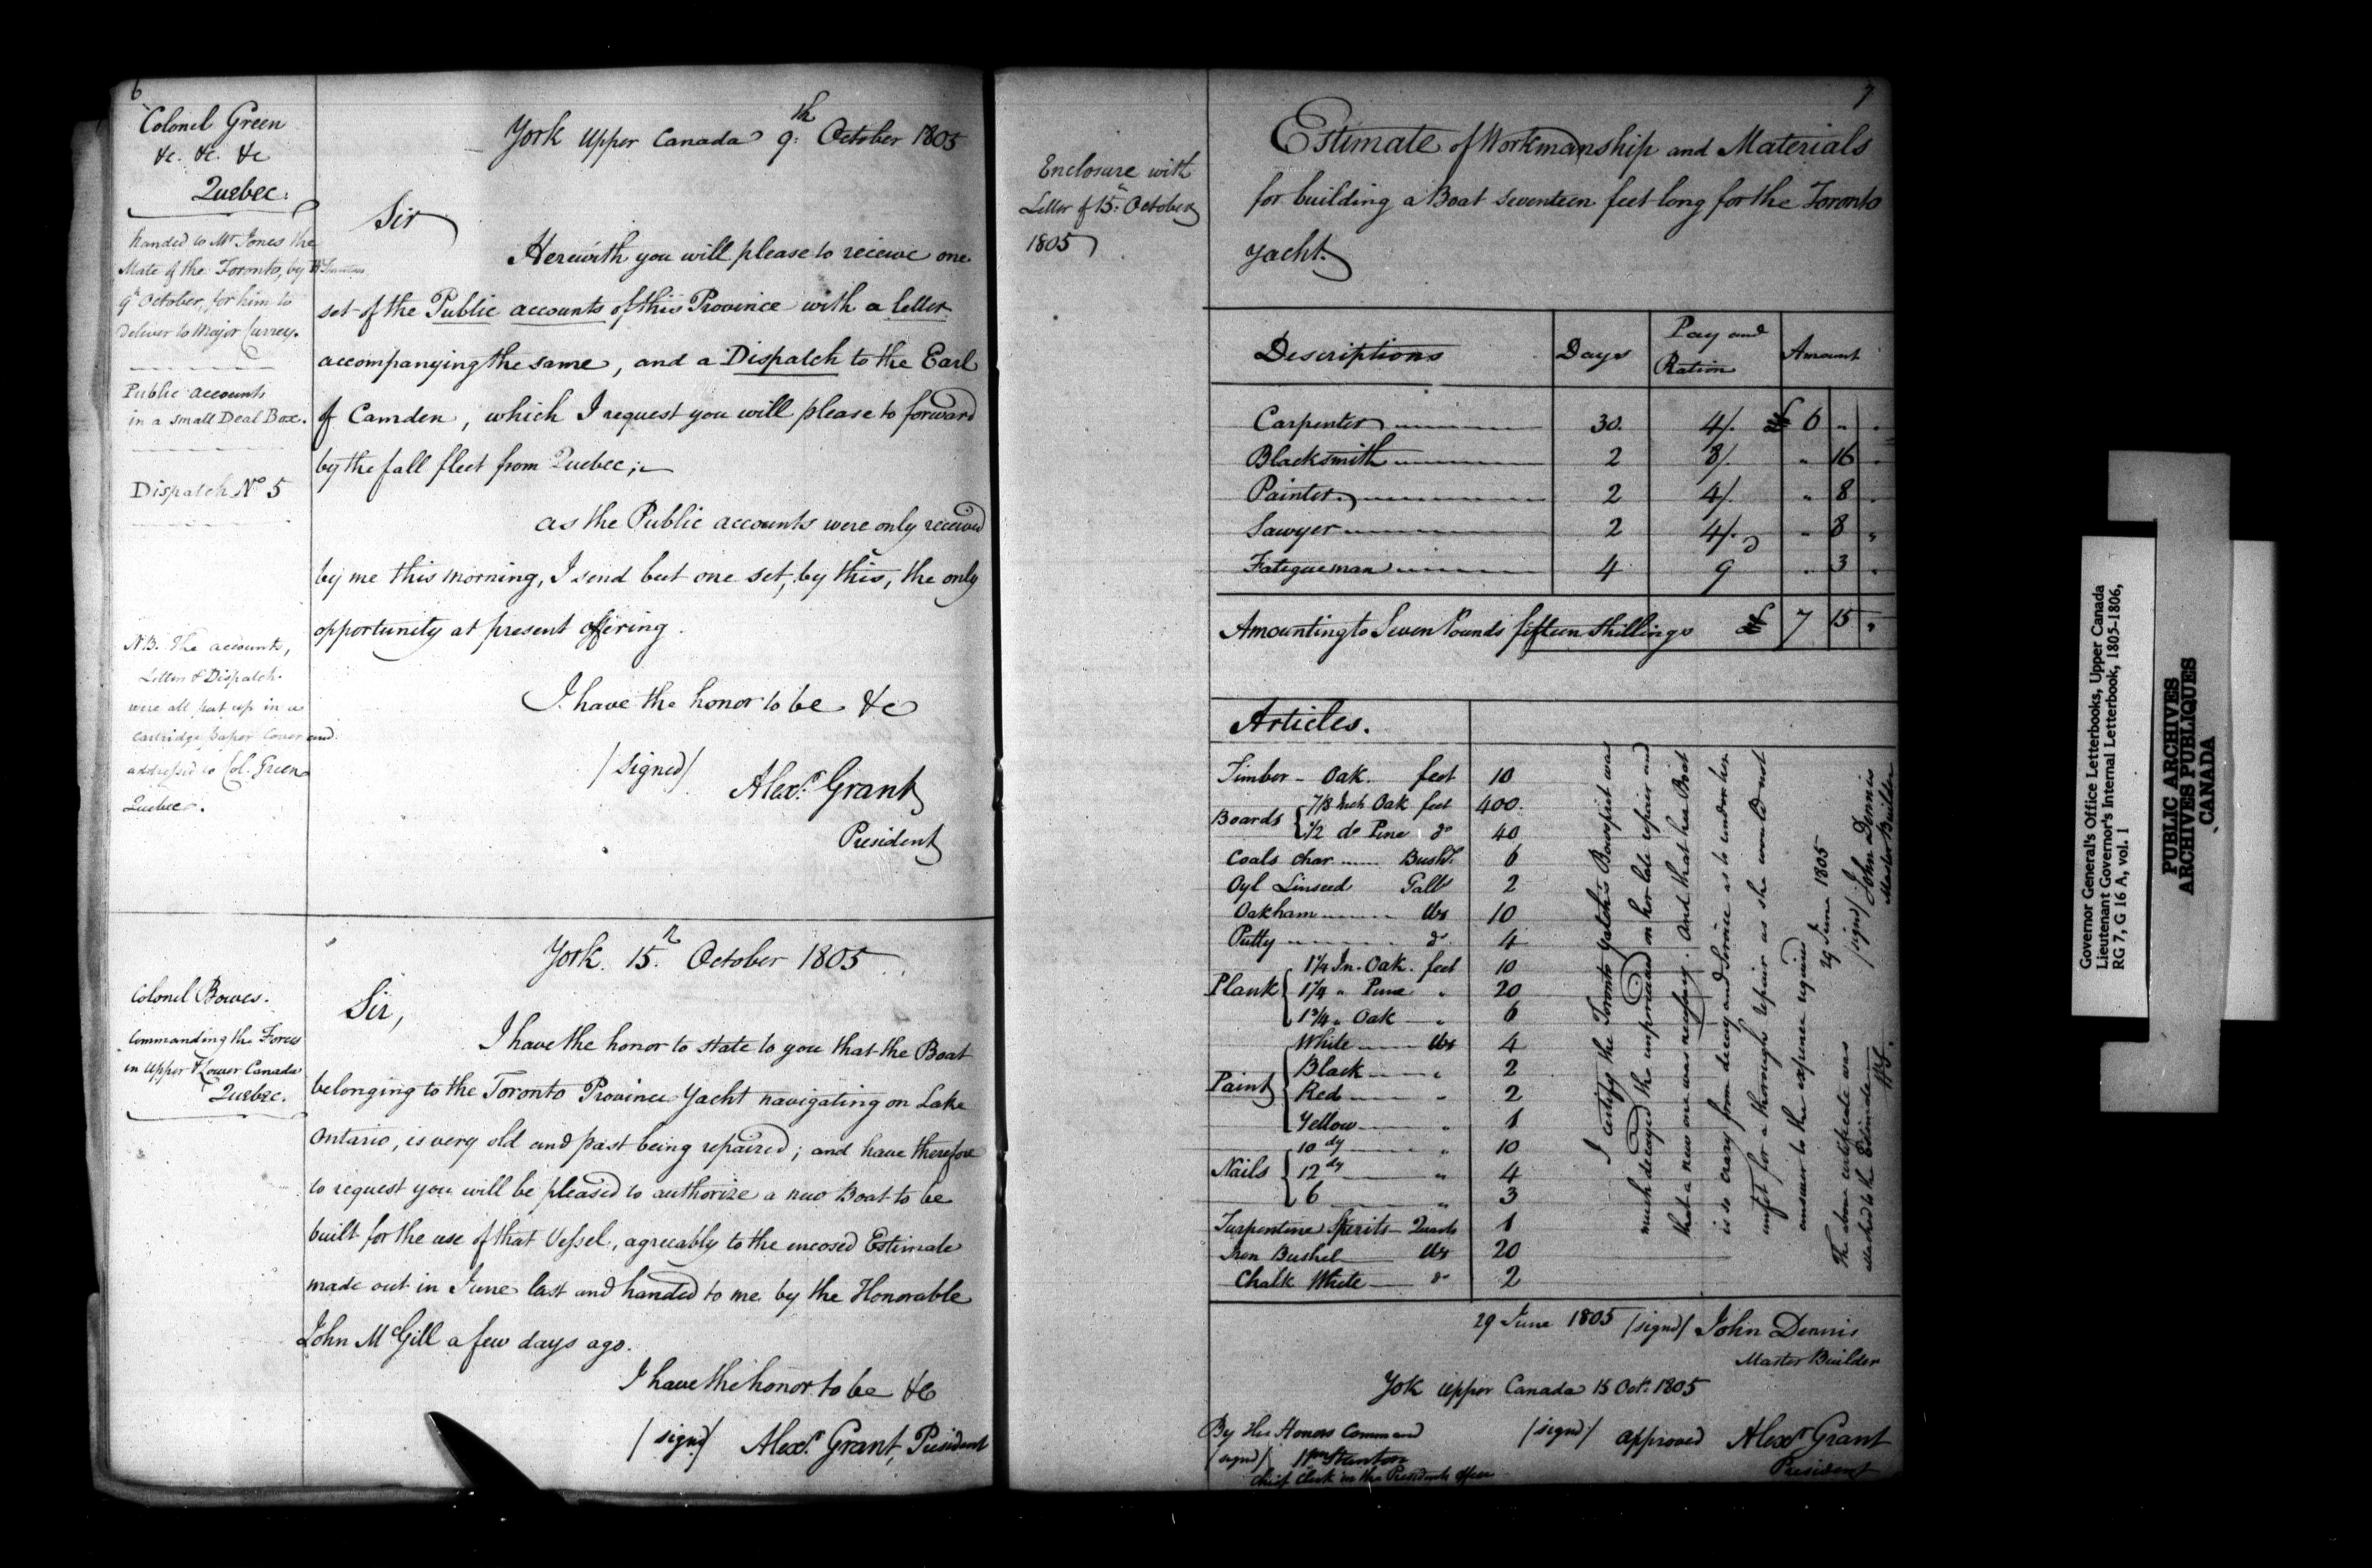 6
Colonel Green
&c. &c. &c
Quebec.
handed to Mr Jones the
Mate of the Toronto, by
9th October, for him to
deliver to Major Currey.
Public accounts
in a small Deal Box.
Dispatch No 5
N.B. The accounts,
Letter & Dispatch
were all put up in a
Cartridge paper Cover and
addressed to Col. Green
Quebec.
York Upper Canada 9th October 1805
Sir
Herewith you will please to receive one
set of the Public accounts of this Province with a letter
accompanying the same, and a Dispatch to the Earl
of Camden, which I request you will please to forward
by the fall fleet from Quebec;
as the Public accounts were only received
by me this morning, I send but one set, by this, the only
opportunity at present offering.
I have the honor to be &c
/signed/
Alexr Grant
President
Colonel Bowes.
Commanding the Forces
in Upper & Lower Canada
Quebec.
York. 15th October 1805
Sir,
I have the honor to state to you that the Boat
belonging to the Toronto Province Yacht navigating on Lake
Ontario, is very old and past being repaired; and have therefore
to request you will be pleased to authorize a new Boat to be
built for the use of that Vessel, agreeably to the encosed Estimate
made out in June last and handed to me by the Honorable
John McGill a few days ago.
I have the honor to be &c
/signd/ Alexr Grant, President
7
Enclosure with
Letter of 15th October
1805
Estimate of Workmanship and Materials
for building a Boat seventeen feet long for the Toronto
Yacht.
Descriptions Days Pay and Ration Amount
Carpenter 30. 4/. £ 6 " "
Blacksmith 2 8/. " 16 "
Painter 2 4/. " 8 "
Sawyer 2 4/. " 8 "
Fatigueman 4 9d " 3 "
Amounting to Seven Pounds fifteen Shillings £ 7 15 "
Articles.
Timber - Oak. feet 10
Boards { 7/8 Inch Oak feet 400.
1/2 do Pine do 40
Coals char Bushl. 6
Oyl Linseed Galls 2
Oakham lbs 10
Putty do 4
Plank { 1 1/4 In. Oak. feet 10
1 1/4 " Pine " 20
1 3/4 " Oak " 6
Paint { White lbs 4
Black " 2
Red " 2
Yellow " 1
Nails { 10 dy " 10
12 dy " 4
6 " 3
Turpentine Spirits Quarts 1
Iron Bushel lbs 20
Chalk White do 2
I certify the Toronto Yatch's Bowsprit was
much decayed & the unprovided on her late repair and
that a new one was necessary. And that her Boat
is so crazy from decay and Service as to render her
unfit for a thorough repair as she would not
answer to the expence required
29 June 1805
/signd/ John Dennis
Master Builder
The above certificate was
attached to the Estimate
WS.
29 June 1805 /signd/ John Dennis
Master Builder
Yok Upper Canada 15 Octr. 1805
/signd/ approved Alexr Grant
President
By His Honors Command
/signd/ Wm Stanton
Chief Clerk in the Presidents Office
Governor General's Office Letterbooks, Upper Canada
Lieutenant Governor's Internal Letterbook, 1805-1806,
RG 7, G 16 A, vol. 1
PUBLIC ARCHIVES
ARCHIVES PUBLIQUES
CANADA